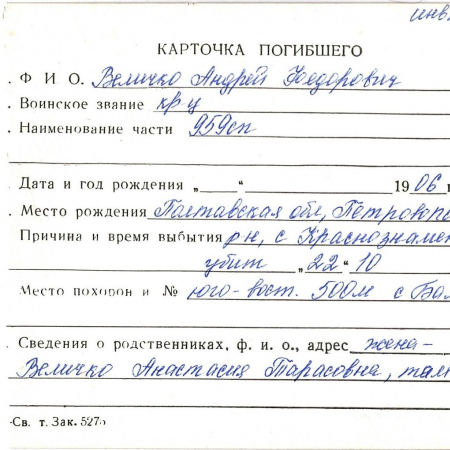 инв.
КАРТОЧКА ПОГИБШЕГО
. Ф И О. Величко Андрей Федорович
. Воинское звание кр-ц
. Наименование части 959сп
. Дата и год рождения „___“ 1906 г
. Место рождения Полтавская обл, Петровоп
Причина и время выбытия р-н, с Краснознаме
убит „22“ 10
Место похорон и № юго-вост. 500м с Ба
. Сведения о родственниках, ф. и. о., адрес жена-
Величко Анастасия Тарасовна, там
-Св. т. Зак. 527